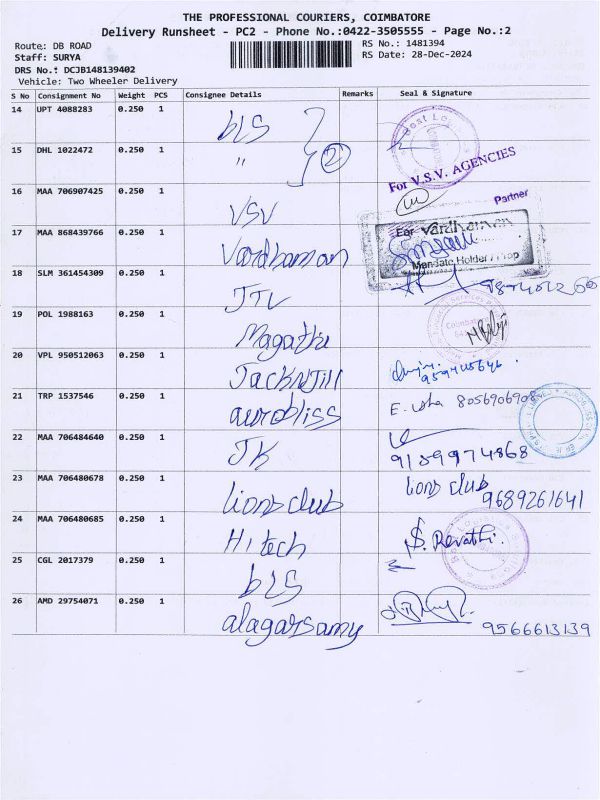 THE PROFESSIONAL COURIERS, COIMBATORE
Delivery Runsheet - PC2 - Phone No.:0422-3505555 - Page No.:2
Route: DB ROAD
RS No.: 1481394
Staff: SURYA
RS Date: 28-Dec-2024
DRS No.: DCJB148139402
Vehicle: Two Wheeler Delivery
S No Consignment No Weight PCS Consignee Details Remarks Seal & Signature
14 UPT 4088283 0.250 1 bLS
15 DHL 1022472 0.250 1 " 2
For V.S.V. AGENCIES
Partner
16 MAA 706907425 0.250 1 VSV
For Vardhaman
17 MAA 868439766 0.250 1 Vardhaman
Mandate Holder / Prop
18 SLM 361454309 0.250 1 JTL
19 POL 1988163 0.250 1 Magathi
Coimbatore
20 VPL 950512063 0.250 1 JackNJill
21 TRP 1537546 0.250 1 aurobliss E. Usha 8056906908
22 MAA 706484640 0.250 1 JK 9159974868
23 MAA 706480678 0.250 1 lions club lions club 9689261641
24 MAA 706480685 0.250 1 Hitech S. Revathi.
25 CGL 2017379 0.250 1 bLS
26 AMD 29754071 0.250 1 alagarsamy 9566613139